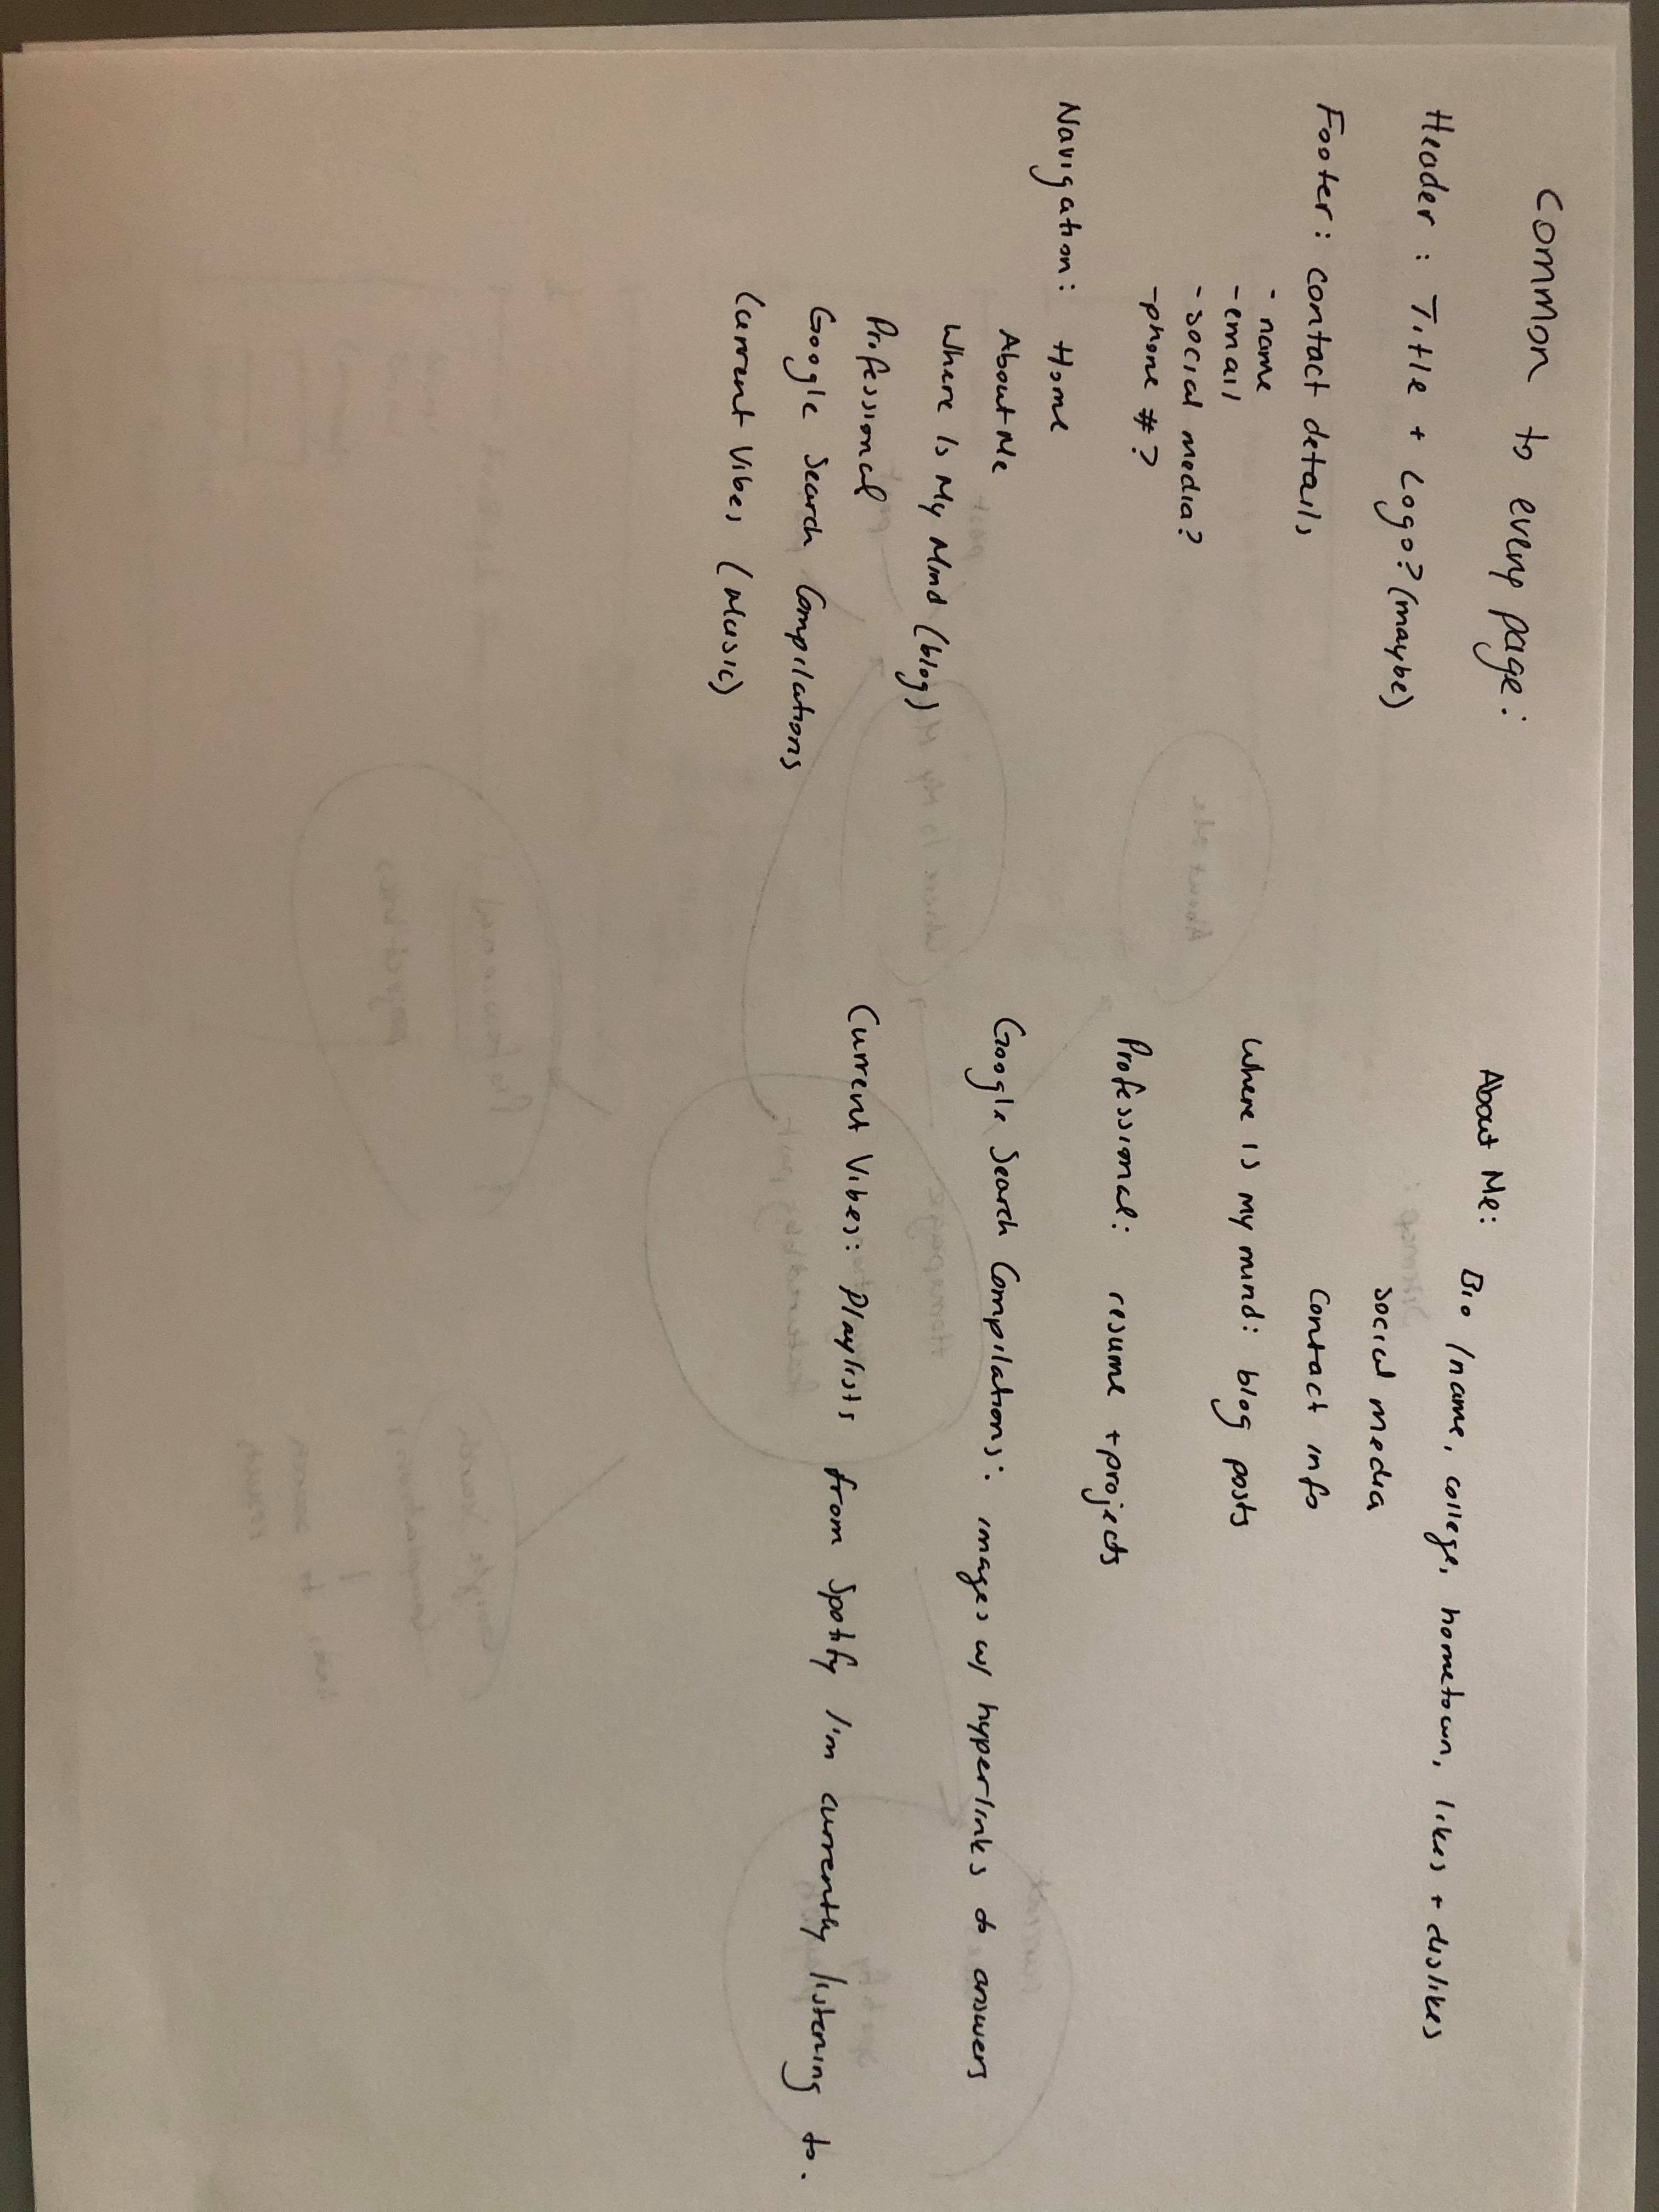 Common to every page:
Header: Title + Logo? (maybe)
Footer: contact details
- name
- email
- social media?
- phone #?
Navigation: Home
About Me
Where Is My Mind (blog)
Professional
Google Search Compilations
Current Vibes (music)
About Me: Bio (name, college, hometown, likes + dislikes
social media
Contact info
Where is my mind: blog posts
Professional: resume + projects
Google Search Compilations: images w/ hyperlinks to answers
Current Vibes: Playlists from Spotify I'm currently listening to.